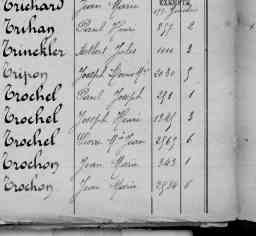 Trichard Jean Marie
Trihan Paul Henri 277 2
Trinckler Albert Jules 1000 2
Tripon Joseph 2030 5
Trochel Paul Joseph 298 1
Trochel Joseph Henri 3
Trochel Pierre Mie Jean 2569 6
Trochon Jean Marie 343 1
Trochon Jean Marie 2554 6